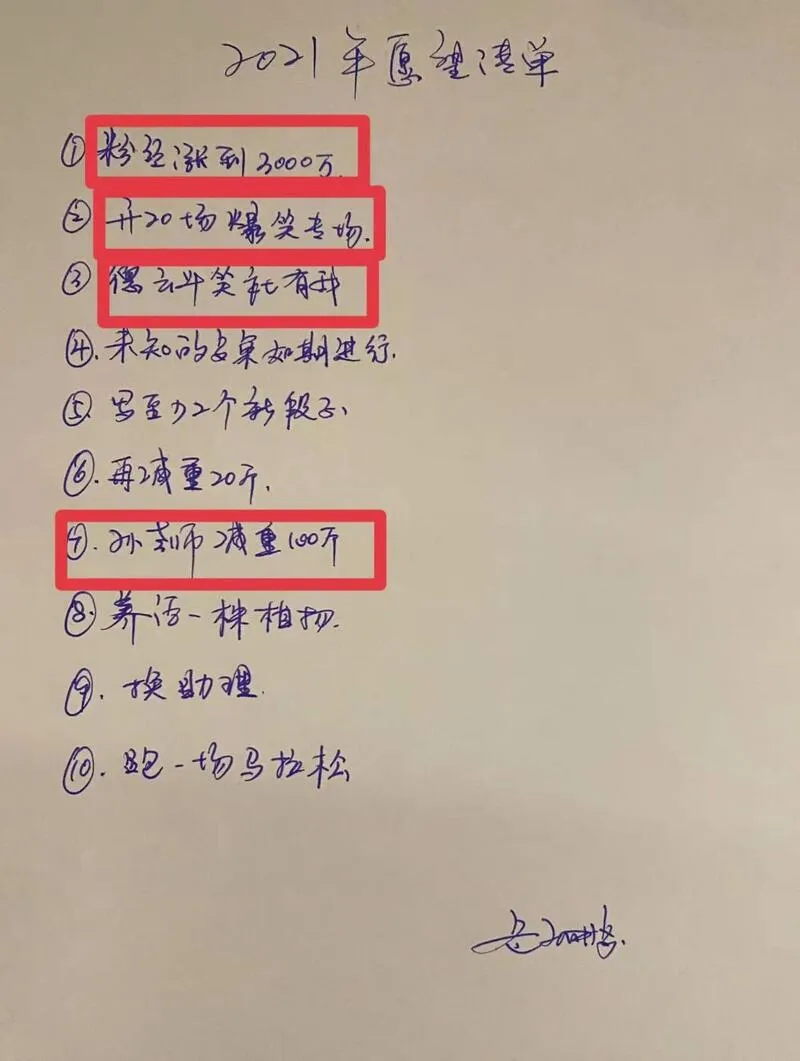 2021年愿望清单
①粉丝涨到3000万.
②开20场爆笑专场.
③德云斗笑社有我
④.未知的专案如期进行.
⑤.写至少2个新段子.
⑥.再减重20斤.
⑦.孙老师减重100斤
⑧.养活一株植物.
⑨.换助理.
⑩.跑一场马拉松
岳云鹏.